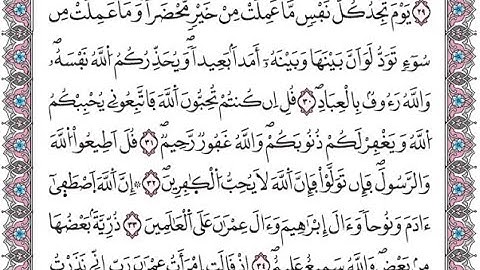 ٢٩ يَوْمَ تَجِدُ كُلُّ نَفْسٍ مَّا عَمِلَتْ مِنْ خَيْرٍ مُّحْضَراً وَمَا عَمِلَتْ مِن
سُوٓءٍ تَوَدُّ لَوَ اَنَّ بَيْنَهَا وَبَيْنَهُۥٓ أَمَداَۢ بَعِيداً وَيُحَذِّرُكُمُ اُللَّهُ نَفْسَهُۥ
وَاللَّهُ رَءُوفُۢ بِالْعِبَادِ ٣٠ قُلِ اِن كُنتُمْ تُحِبُّونَ اَللَّهَ فَاتَّبِعُونِي يُحْبِبْكُمُ
اُللَّهُ وَيَغْفِرْ لَكُمْ ذُنُوبَكُمْ وَاللَّهُ غَفُورٌ رَّحِيمٌ ٣١ قُلَ اَطِيعُوا اُللَّهَ
وَالرَّسُولَ فَإِن تَوَلَّوْا فَإِنَّ اَللَّهَ لَا يُحِبُّ الْكَٰفِرِينَ ٣٢ إِنَّ اَللَّهَ اَصْطَفَىٰٓ
ءَادَمَ وَنُوحاً وَءَالَ إِبْرَٰهِيمَ وَءَالَ عِمْرَٰنَ عَلَى اَلْعَٰلَمِينَ ٣٣ ذُرِّيَّةَۢ بَعْضُهَا
مِنۢ بَعْضٍ وَاللَّهُ سَمِيعٌ عَلِيمٌ ٣٤ إِذْ قَالَتِ اِمْرَأَتُ عِمْرَٰنَ رَبِّ إِنِّي نَذَرْتُ